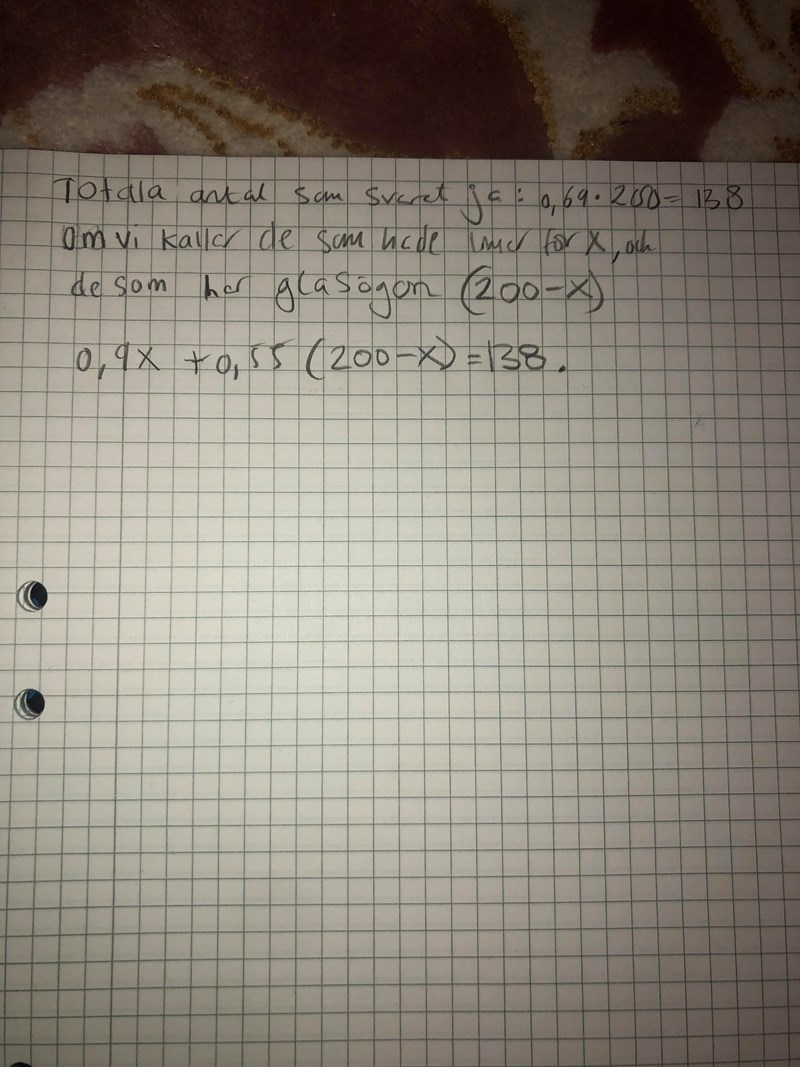 Totala antal som svarat ja: 0,69 · 200 = 138
Om vi kallar de som hade linser för X, och
de som har glasögon (200-X)
0,9X + 0,55 (200-X) = 138.